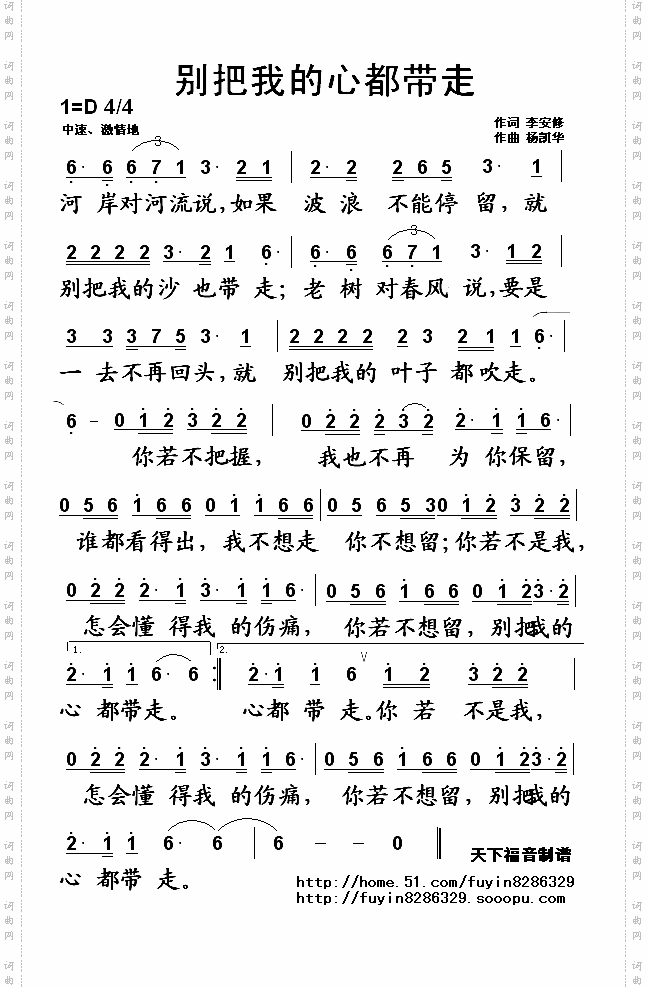 别把我的心都带走
1=D 4/4
中速、激情地
作词 李安修
作曲 杨凯华
3
6· 6 6 7 1 3· 2 1 | 2· 2 2 6 5 3· 1
河 岸对河流说,如果 波 浪 不能停 留，就
3
2 2 2 2 3· 2 1 6· | 6· 6 6 7 1 3· 1 2
别把我的沙 也带 走；老 树 对春风 说,要是
3 3 3 7 5 3· 1 | 2 2 2 2 2 3 2 1 1 6· |
一 去不再回头,就 别把我的 叶子 都吹走。
6 – 0 1 2 3 2 2 | 0 2 2 2 3 2 2· 1 1 6· |
你若不把握， 我也不再 为 你保留，
0 5 6 1 6 6 0 1 1 6 6 | 0 5 6 5 3 0 1 2 3 2 2 |
谁都看得出，我不想走 你不想留；你若不是我，
0 2 2 2· 1 3· 1 1 6· | 0 5 6 1 6 6 0 1 2 3· 2
怎会懂 得我 的伤痛， 你若不想留，别把我的
1. 2. V
2· 1 1 6· 6 :‖ 2· 1 1 6 1 2 3 2 2 |
心 都带走。 心都 带 走。你 若 不是我，
0 2 2 2· 1 3· 1 1 6· | 0 5 6 1 6 6 0 1 2 3· 2 |
怎会懂 得我 的伤痛， 你若不想留，别把我的
2· 1 1 6· 6 | 6 – – 0 ‖
心 都带 走。
天下福音制谱
http://home.51.com/fuyin8286329
http://fuyin8286329.sooopu.com
词曲网